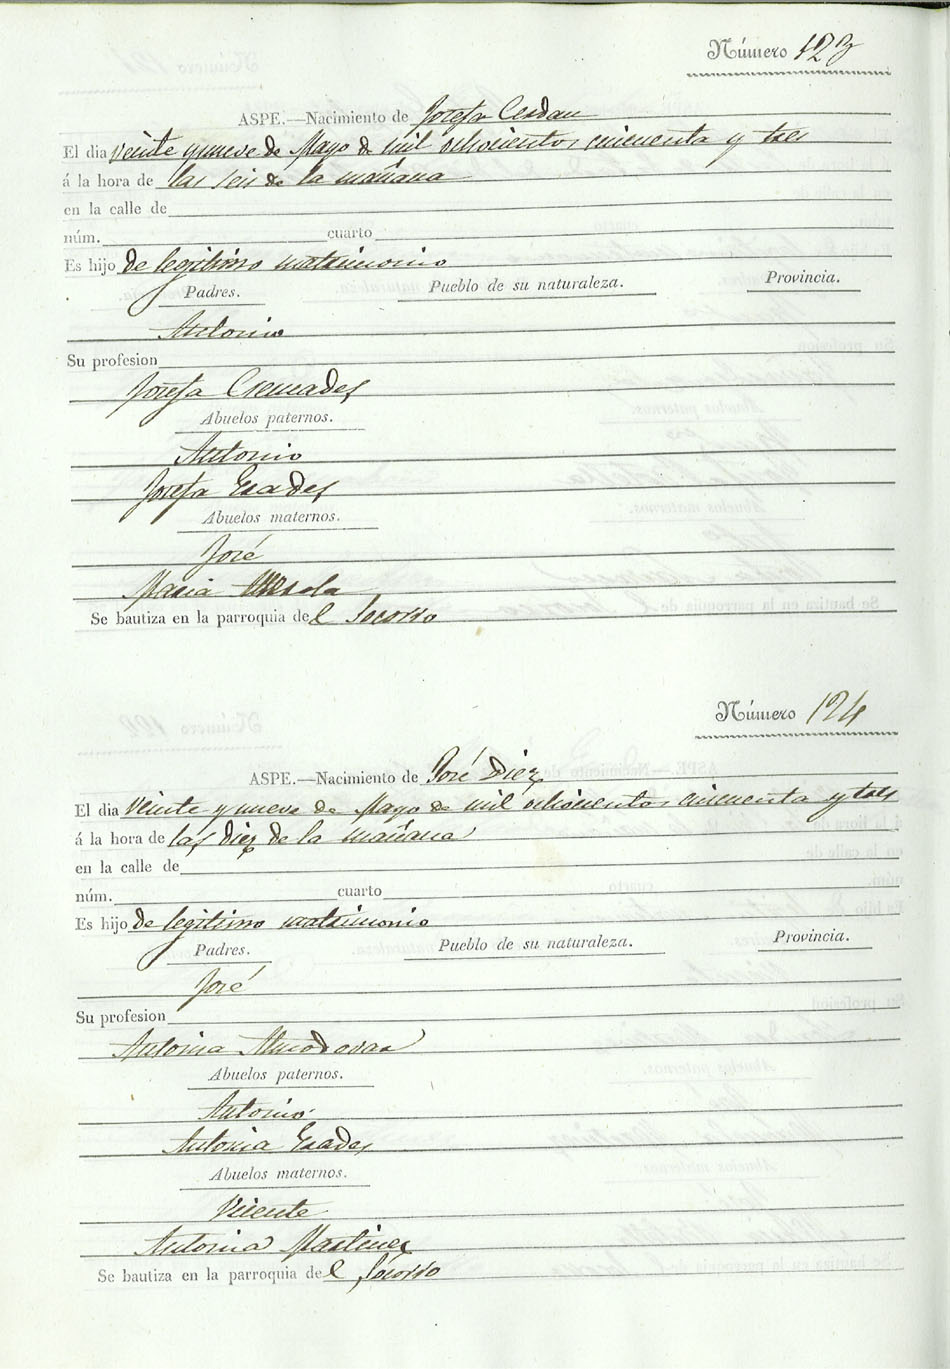 Número 123
ASPE.—Nacimiento de Josefa Cerdan
El dia veinte y nueve de Mayo de mil ochocientos cincuenta y tres
á la hora de las seis de la mañana
en la calle de
núm. cuarto
Es hijo de legitimo matrimonio
Padres. Pueblo de su naturaleza. Provincia.
Antonio
Su profesion
Josefa Cremades
Abuelos paternos.
Antonio
Josefa Prades
Abuelos maternos.
José
Maria Mirola
Se bautiza en la parroquia del Socorro
Número 124
ASPE.—Nacimiento de José Diez
El dia veinte y nueve de Mayo de mil ochocientos cincuenta y tres
á la hora de las diez de la mañana
en la calle de
núm. cuarto
Es hijo de legitimo matrimonio
Padres. Pueblo de su naturaleza. Provincia.
José
Su profesion
Antonia Almodovar
Abuelos paternos.
Antonio
Antonia Prades
Abuelos maternos.
Vicente
Antonia Martinez
Se bautiza en la parroquia del Socorro